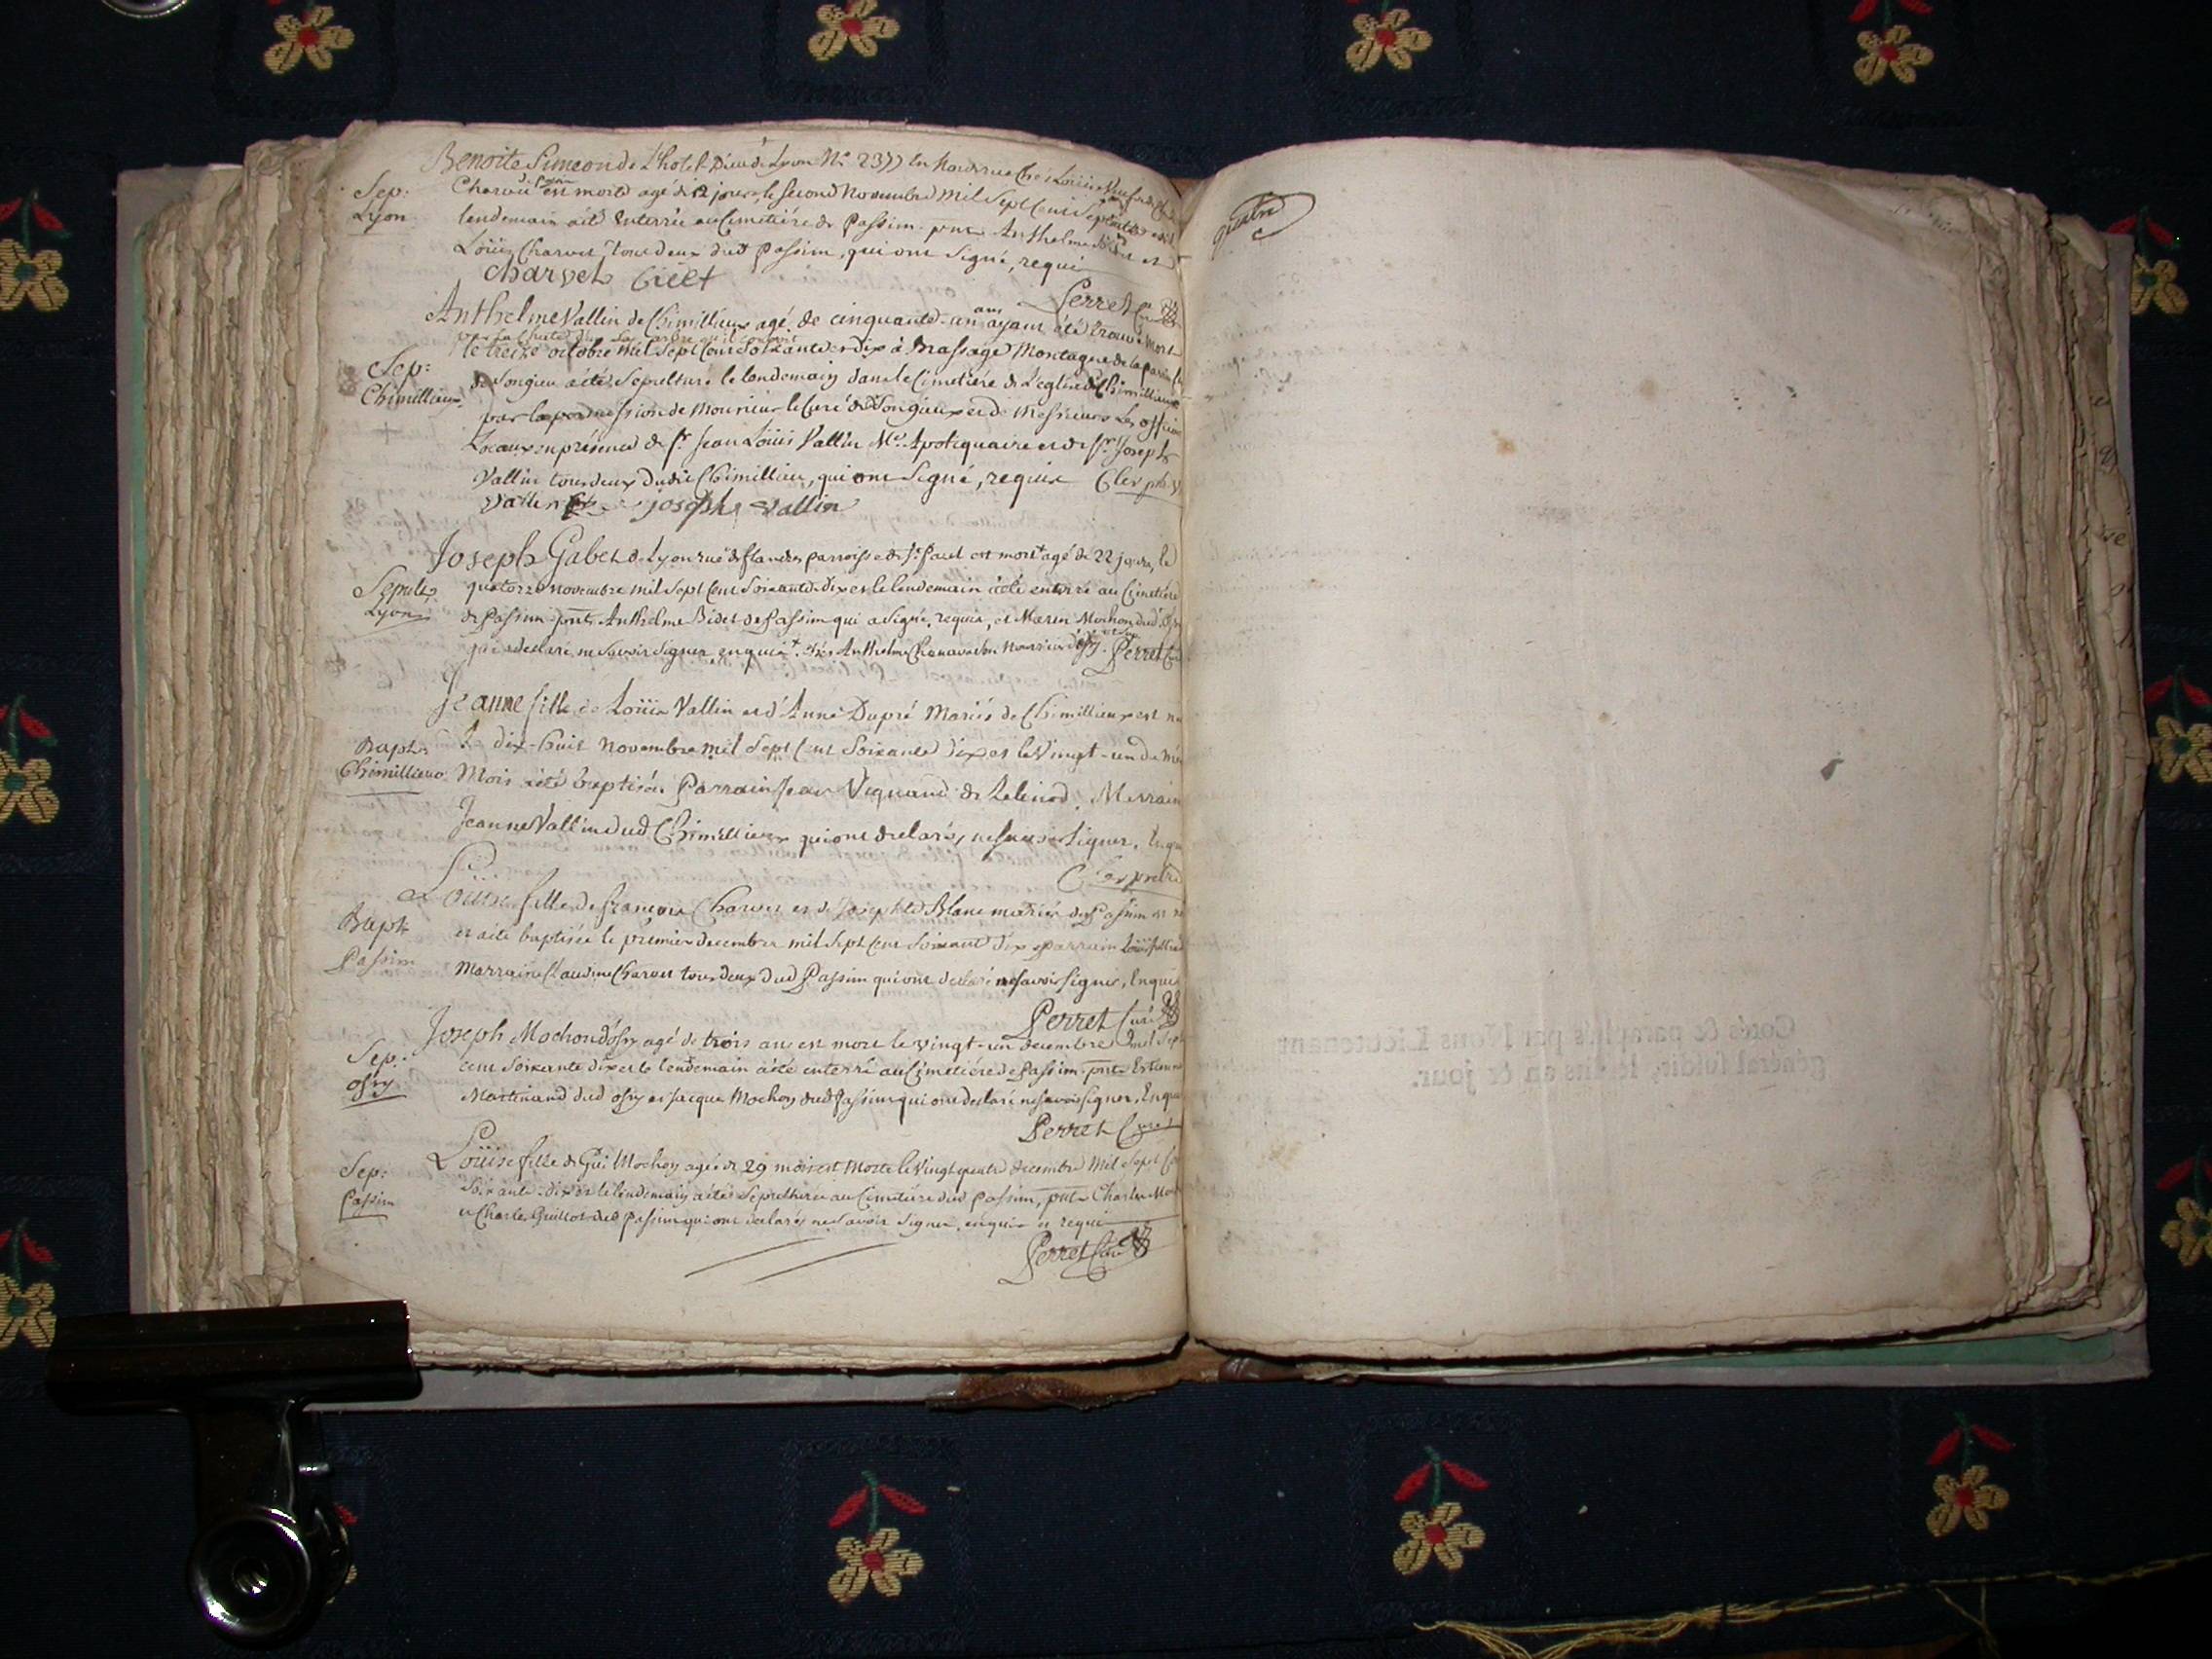 Benoite Simeon de L'hotel-Dieu de Lyon N.º 2377 en nourrice Chés Loüis
Sep: Lyon
Charvet de Passin est morte agé de 12 jours, le second Novembre mil Sept Cent Septante
lendemain a été Enterrée au Cimetiére de Passin. pnts Anthelme
Loüis Charvet tous deux dud Passin, qui ont Signé, requis
Charvet
Perret Curé
Anthelme Vallin de Chimillieux agé de cinquante-un ans ayant été trouvé mort
le treize octobre mil Sept Cent Soixante et dix à Brassage Montagne de la parroisse
Sep: Chimillieux
de Songieu a été Sepulturé le lendemain dans le Cimetiére de L'eglise de Chimillieux
par la permission de Monsieur le Curé de Songieux et de Messieurs Les officiers
Locaux en présence de Sr. Jean Loüis Vallin Me. Apotiquaire et de Sr. Joseph
Vallin tous deux dudit Chimillieu, qui ont Signé, requis Clerc
Vallin joseph Vallin
Joseph Gabet de Lyon rue de flandres parroisse de St. Paul est mort agé de 22 jours, le
Sepult. Lyon
quatorze novembre mil Sept Cent Soixante dix et le lendemain a été enterré au Cimetiére
de Passin pnts Anthelme Bidet de Passin qui a Signé, requis, et Marin Mochon dud
qui a declaré ne Savoir Signer, enquis. Chés Anthelme nourrice Perret
Jeanne fille de Loüis Vallin et d'Anne Dupré Mariés de Chimillieux est née
Bapt. Chimillieux
le dix-huit novembre mil Sept Cent Soixante dix et le Vingt-un du même
Mois a été baptisée. Parrain Jean Vignand de Selinod, Marraine
Jeanne Vallin dud Chimillieux qui ont declaré, ne Savoir Signer, Enquis
Clerc pretre
Loüise fille de francois Charvet et de Josephte Blanc mariés de Passin est née
Bapt Passin
et a été baptisée le premier decembre mil Sept Cent Soixante dix parrain Loüis
Marraine Claudine Charvet tous deux dud Passin qui ont declaré ne Savoir Signer, Enquis
Perret Curé
Joseph Mochon d'ossy agé de trois ans est mort le vingt-un decembre mil Sept
Sep: ossy
cent Soixante dix et le lendemain a été enterré au Cimetiére de Passin pnts Estienne
Martinand dud ossy et Jacque Mochon dud Passin qui ont declaré ne Savoir Signer, Enquis
Perret Curé
Loüise fille de Gui Mochon agée de 29 mois est Morte le Vingt quatre decembre Mil Sept Cent
Sep: Passin
Soixante-dix et le lendemain a été Sepulturée au Cimetiére dud Passin, pnts Charles
et Charles Guillot dud Passin qui ont declarés ne Savoir Signer, enquis et requis
Perret Curé
Cotés & paraphés par Nous Lieutenant
général susdit, lesdits an & jour.